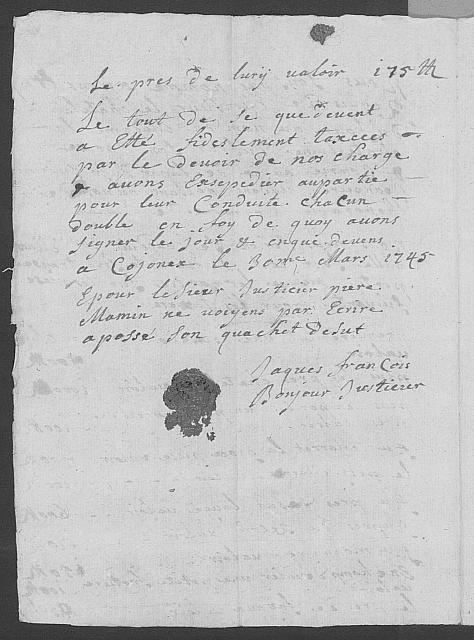 Le pres de lurij valoir 175 ₶
Le tout de se que devent
a Etté fideslement taxcees
par le devoir de nos charge
avons Exsepedier aupartie
pour leur Conduite chaCun
double en foy de quoy avons
signer le jour et enque devens
a Cojonex le 30me Mars 1745
Epour le sieur Justicier piere
Mamin ne voiyens par Ecrire
a possé son quachet desut
Jaques franCois
Bonjour Justicier